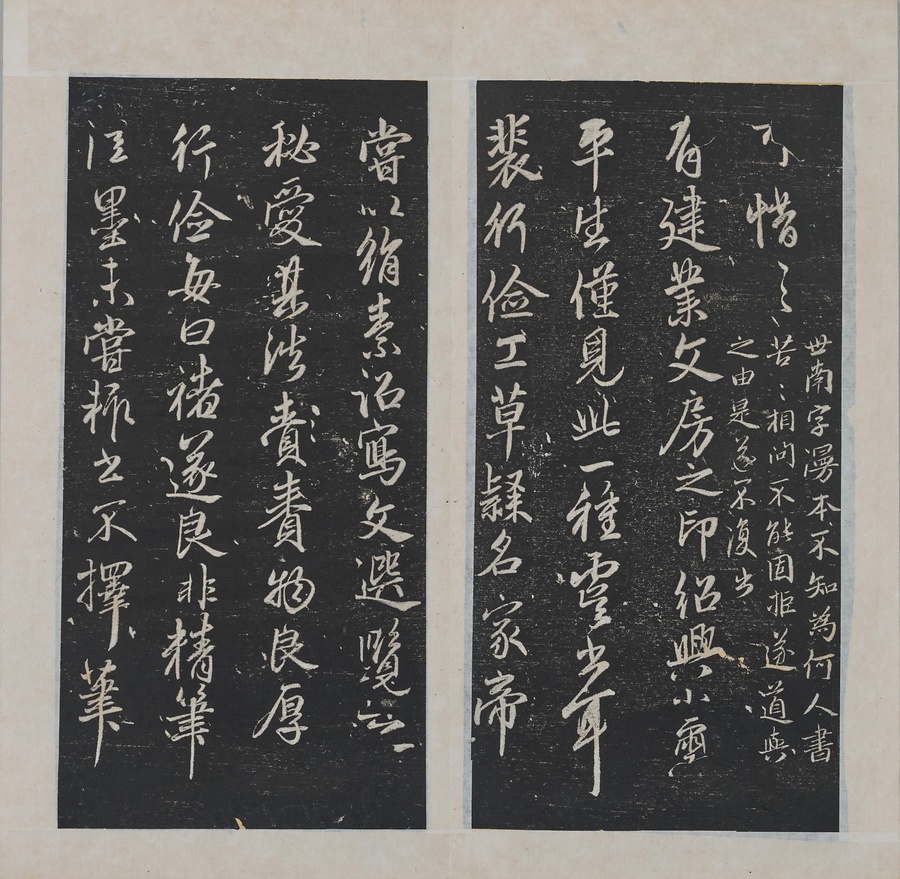 可惜〻
世南字漫本不知為何人書
苦〻相問不能固拒遂道與
之由是遂不復出
有建業文房之印紹興小璽
平生僅見此一種虞書耳
裴行儉工草隸名家帝
嘗以絹素詔寫文選覽之
秘愛其法賚賚物良厚
行儉每曰褚遂良非精筆
佳墨未嘗輒書不擇筆